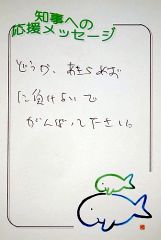 知事への
応援メッセージ
どうか、あきらめず
に負けないで
がんばって下さい。